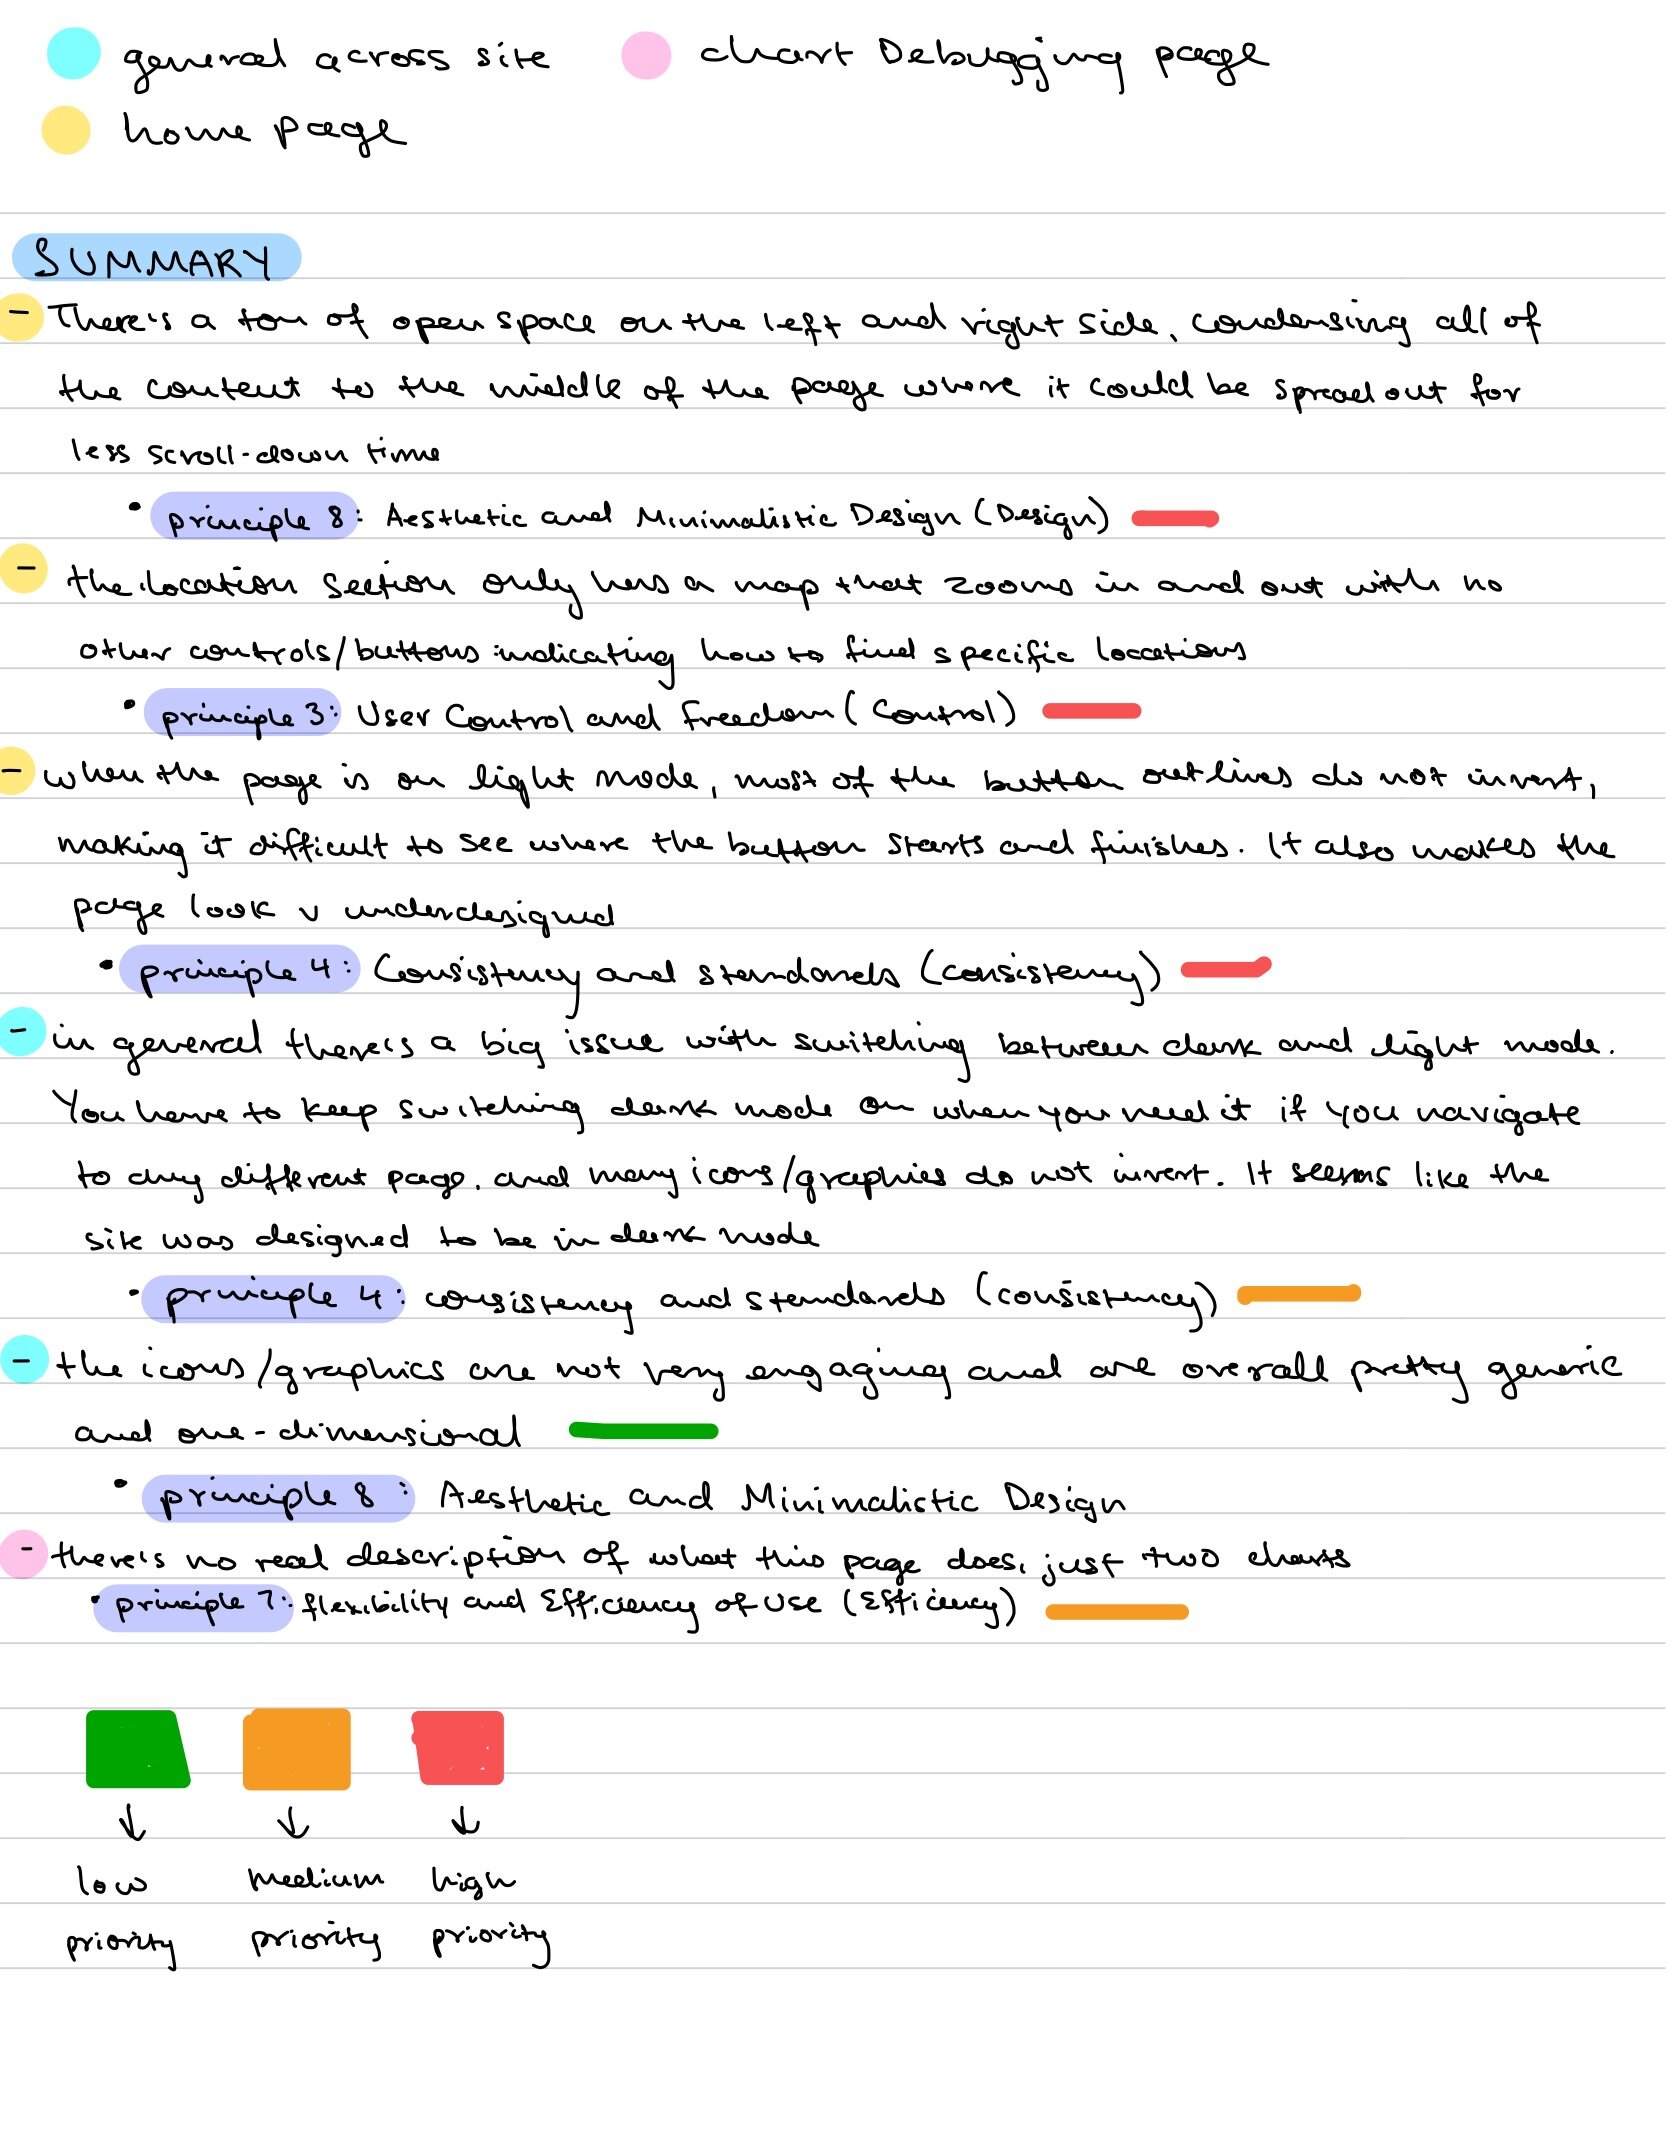 general across site
chart Debugging page
home page
SUMMARY
- There's a ton of open space on the left and right side, condensing all of
the content to the middle of the page where it could be spread out for
less scroll-down time
• principle 8: Aesthetic and Minimalistic Design (Design)
- the location section only has a map that zooms in and out with no
other controls/buttons indicating how to find specific locations
• principle 3: User Control and Freedom (Control)
- when the page is on light mode, most of the button outlines do not invert,
making it difficult to see where the button starts and finishes. It also makes the
page look v underdesigned
• principle 4: Consistency and standards (consistency)
- in general there's a big issue with switching between dark and light mode.
You have to keep switching dark mode on when you need it if you navigate
to any different page, and many icons/graphics do not invert. It seems like the
site was designed to be in dark mode
• principle 4: consistency and standards (consistency)
- the icons/graphics are not very engaging and are overall pretty generic
and one-dimensional
• principle 8: Aesthetic and Minimalistic Design
- there's no real description of what this page does, just two charts
• principle 7: flexibility and Efficiency of Use (Efficiency)
low
priority
medium
priority
high
priority